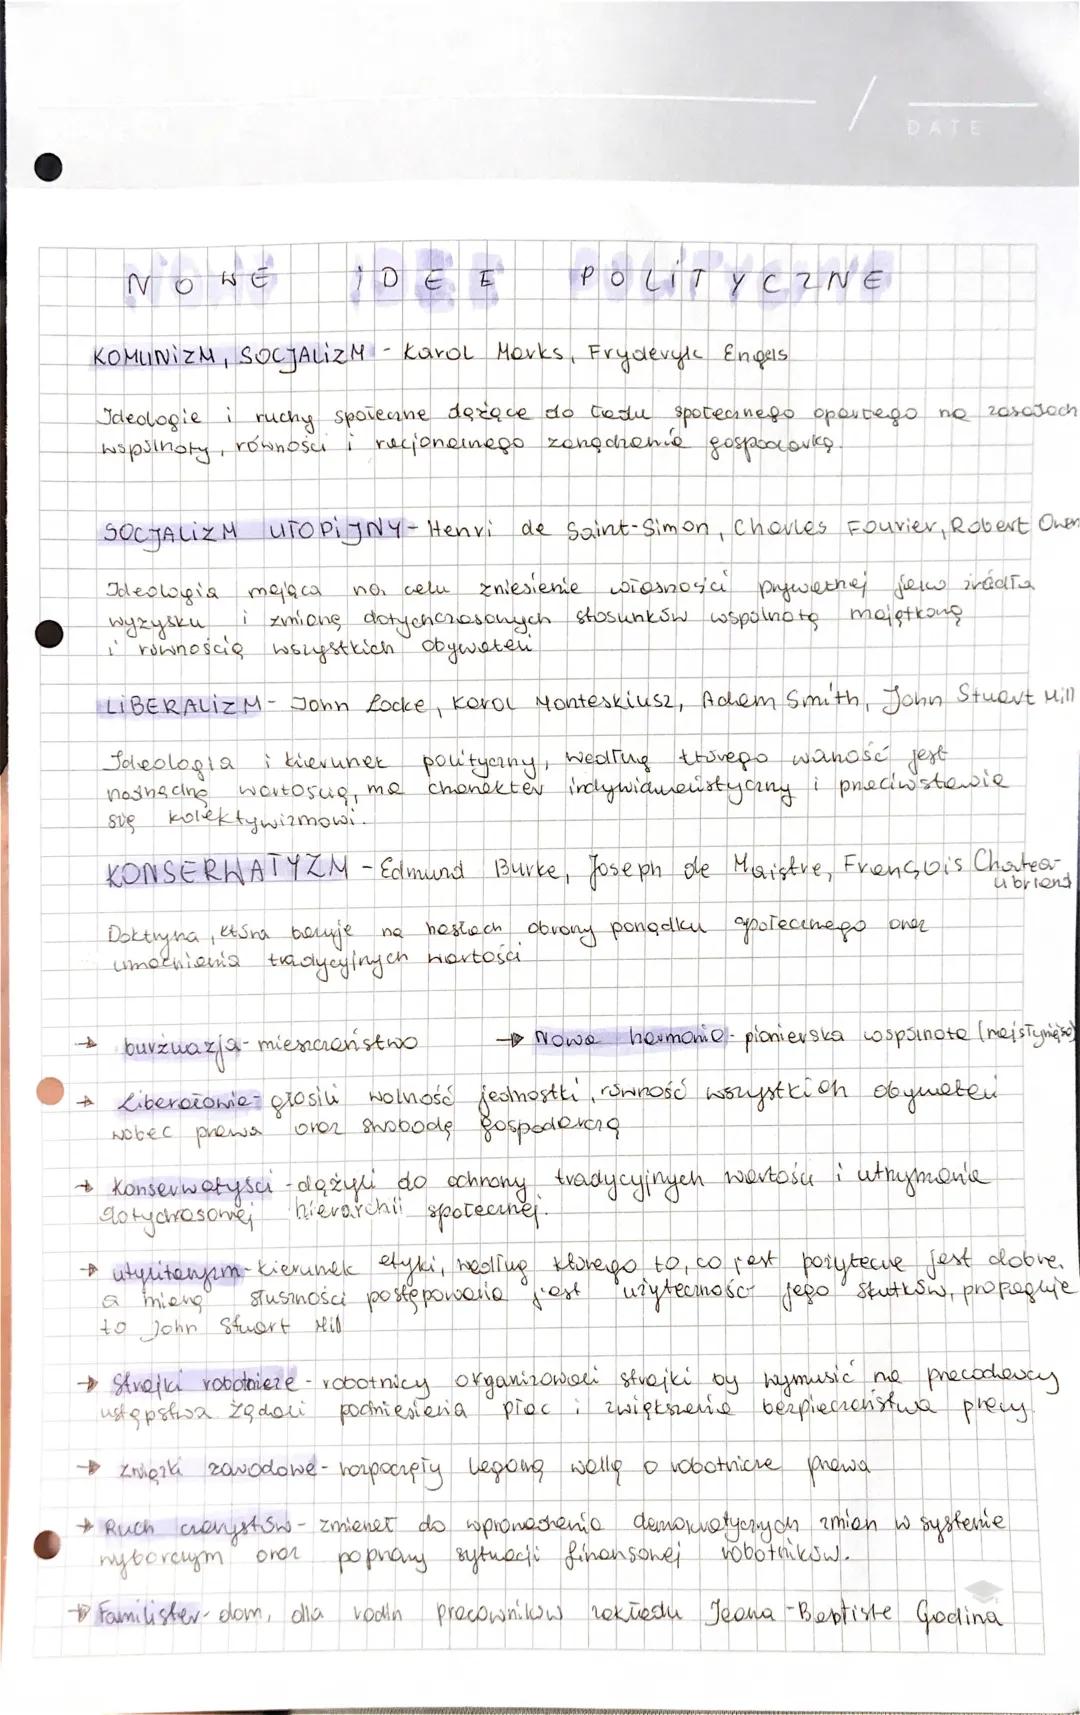 DATE
NOWE IDEE POLITYCZNE
KOMUNIZM, SOCJALIZM - Karol Marks, Fryderyk Engels
Ideologie i ruchy społeczne dążące do ładu społecznego opartego na zasadach
wspólnoty, równości i racjonalnego zarządzania gospodarką.
SOCJALIZM UTOPIJNY - Henri de Saint-Simon, Charles Fourier, Robert Owen
Ideologia mająca na celu zniesienie własności prywatnej jako źródła
wyzysku i zmianę dotychczasowych stosunków wspólnotą majątkową
i równością wszystkich obywateli
LIBERALIZM - John Locke, Karol Monteskiusz, Adam Smith, John Stuart Mill
Ideologia i kierunek polityczny, według którego wolność jest
nadrzędną wartością, ma charakter indywidualistyczny i przeciwstawia
się kolektywizmowi.
KONSERWATYZM - Edmund Burke, Joseph de Maistre, François Chatea-
ubriand
Doktryna, która bazuje na hasłach obrony porządku społecznego oraz
umocnienia tradycyjnych wartości
→ burżuazja - mieszczaństwo → Nowa harmonia - pionierska wspólnota (najsłynniejsza)
→ Liberałowie - głosili wolność jednostki, równość wszystkich obywateli
wobec prawa oraz swobodę gospodarczą
→ Konserwatyści - dążyli do ochrony tradycyjnych wartości i utrzymania
dotychczasowej hierarchii społecznej.
→ utylitaryzm - kierunek etyki, według którego to, co jest pożyteczne jest dobre,
a miarą słuszności postępowania jest użyteczność jego skutków, propaguje
to John Stuart Mill
→ Strajki robotnicze - robotnicy organizowali strajki by wymusić na pracodawcy
ustępstwa żądali podniesienia płac i zwiększenia bezpieczeństwa pracy.
→ Związki zawodowe - rozpoczęły legalną walkę o robotnicze prawa
→ Ruch czartystów - zmierzał do wprowadzenia demokratycznych zmian w systemie
wyborczym oraz poprawy sytuacji finansowej robotników.
→ Familister - dom, dla rodzin pracowników zakładu Jeana-Baptiste Godina